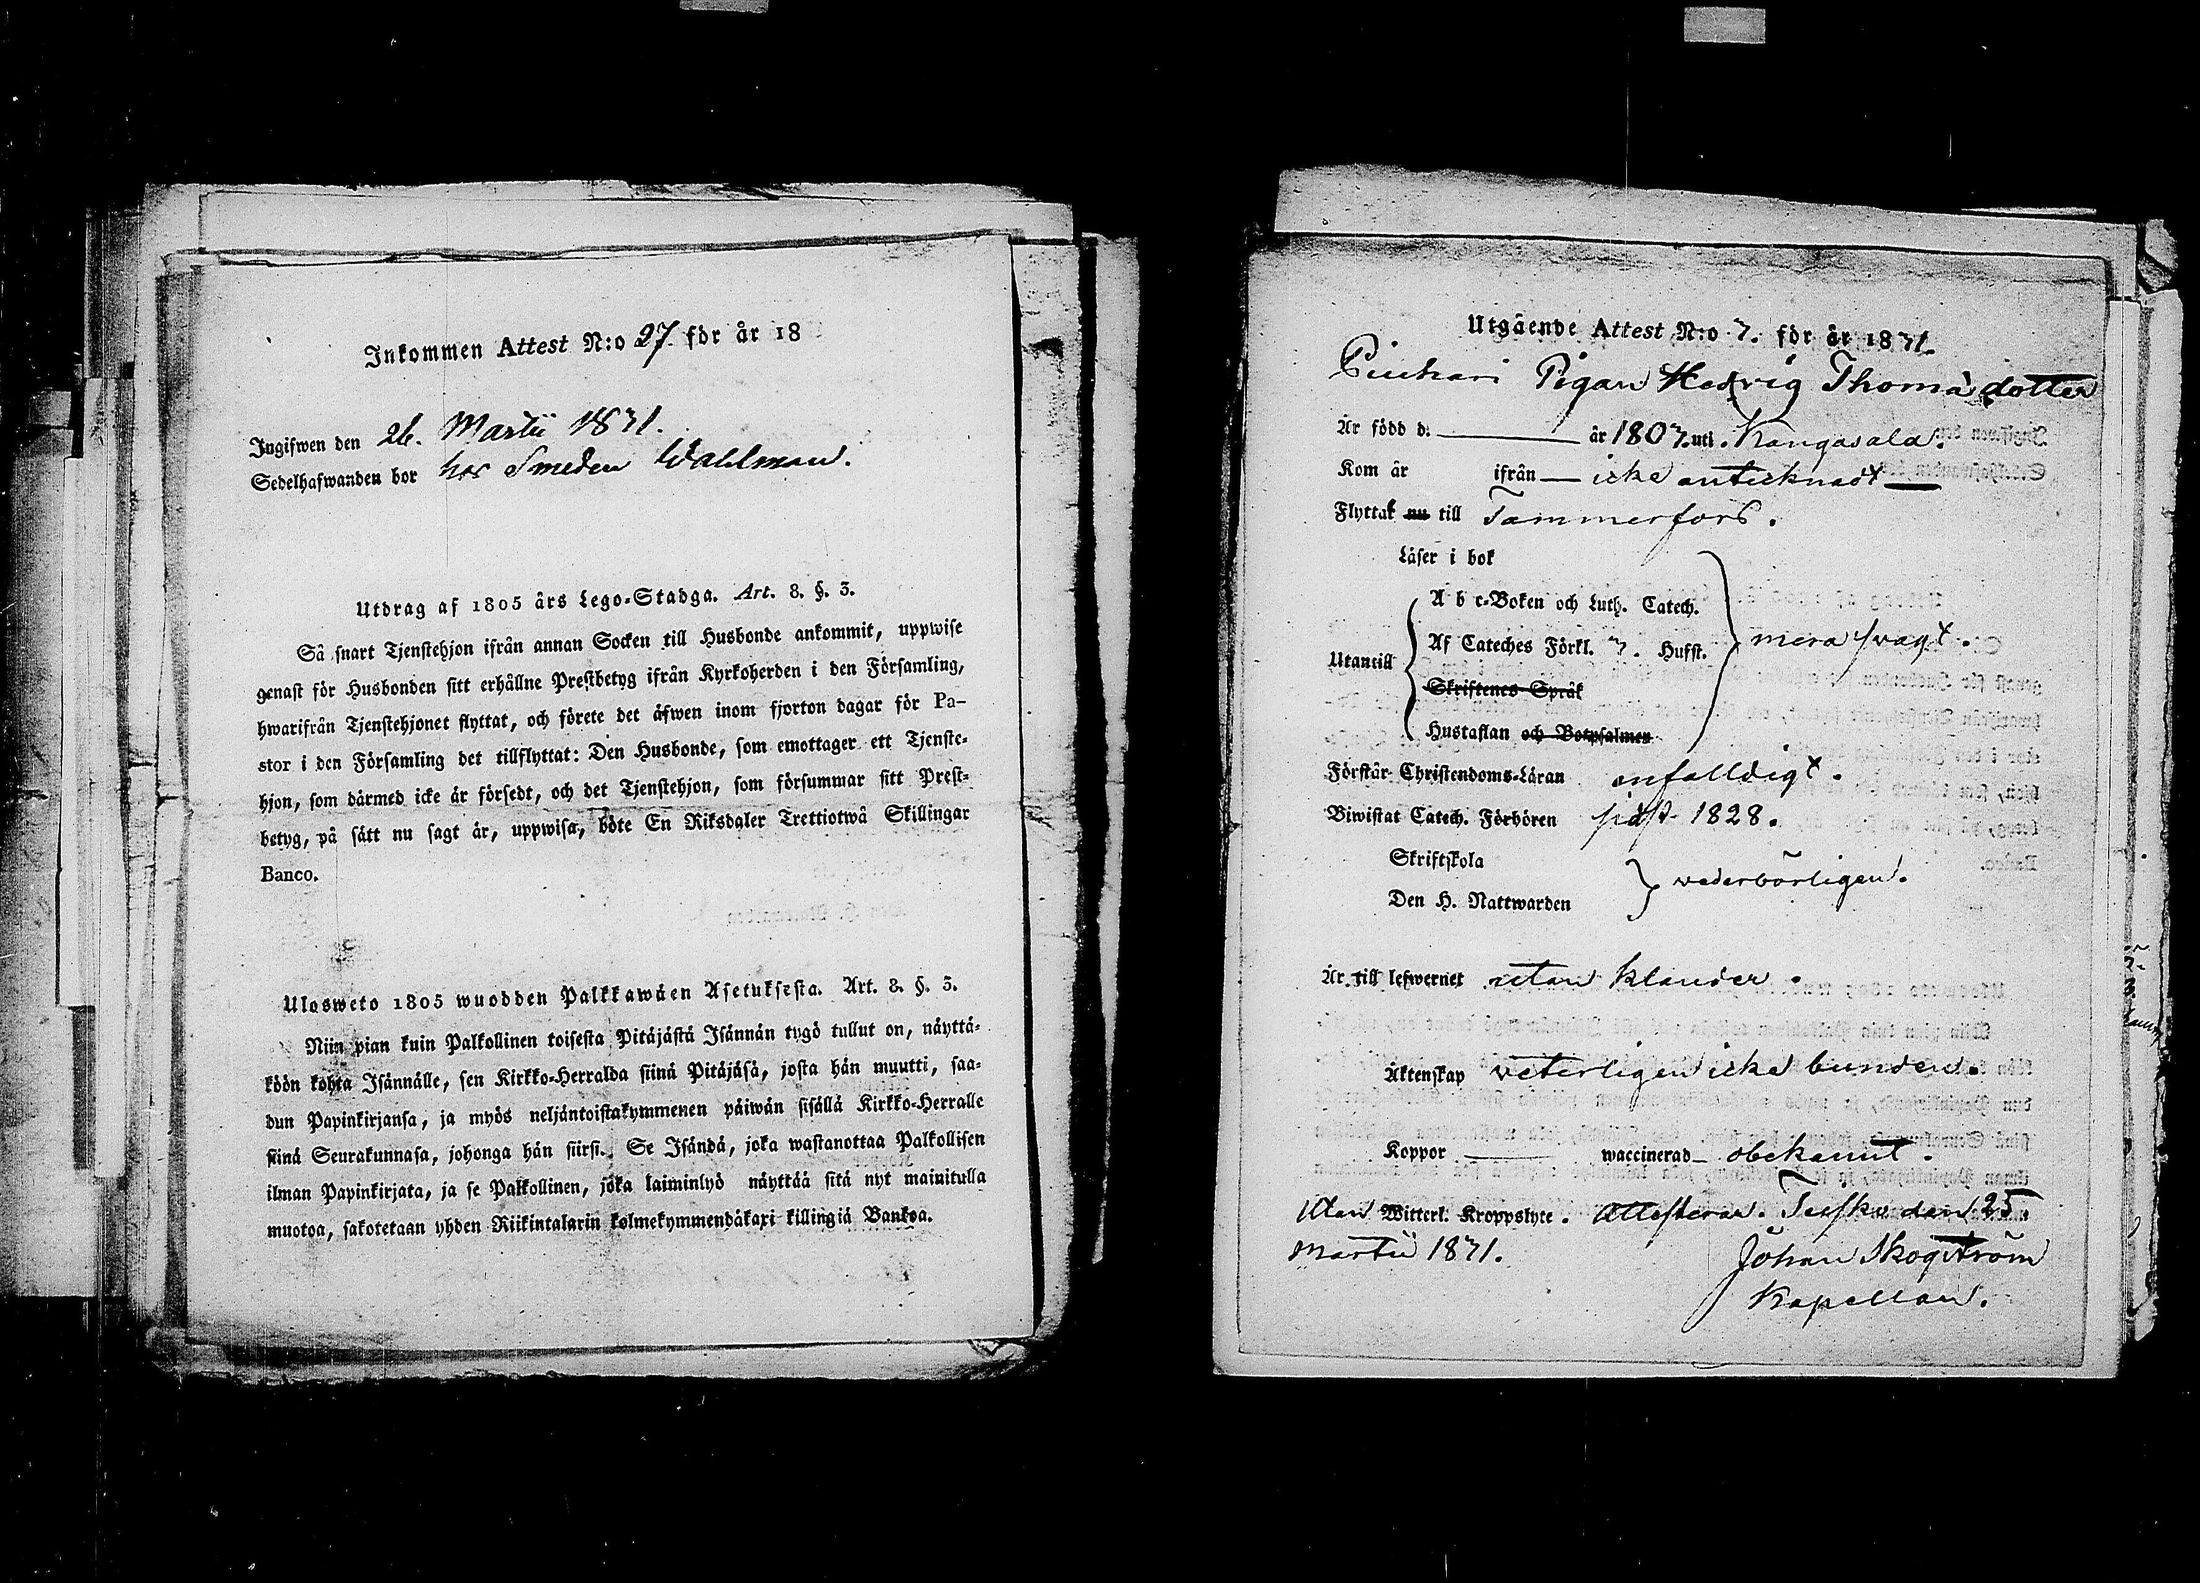 Inkommen Attest N:o 27 för år 18
Ingifwen den 26. Martii 1831.
Sedelhafwanden bor hos Smeden Wahlman.
Utdrag af 1805 års Lego-Stadga. Art. 8. §. 3.
Så snart Tjenstehjon ifrån annan Socken till Husbonde ankommit, uppwise
genast för Husbonden sitt erhållne Prestbetyg ifrån Kyrkoherden i den Församling,
hwarifrån Tjenstehjonet flyttat, och förete det äfwen inom fjorton dagar för Pa-
stor i den Församling det tillflyttat: Den Husbonde, som emottager ett Tjenste-
hjon, som därmed icke är försedt, och det Tjenstehjon, som försummar sitt Prest-
betyg, på sätt nu sagt är, uppwisa, böte En Riksdaler Trettiotwå Skillingar
Banco.
Ulosweto 1805 wuodden Palkkawäen Asetuksesta. Art. 8. §. 3.
Niin pian kuin Palkollinen toisesta Pitäjästä Isännän tygö tullut on, näyttä-
köön kohta Isännälle, sen Kirkko-Herralda siinä Pitäjäsä, josta hän muutti, saa-
dun Papinkirjansa, ja myös neljäntoistakymmenen päiwän sisällä Kirkko-Herralle
siinä Seurakunnasa, johonga hän siirsi. Se Isändä, joka wastanottaa Palkollisen
ilman Papinkirjata, ja se Palkollinen, joka laiminlyö näyttää sitä nyt mainitulla
muotoa, sakotetaan yhden Riikintalarin kolmekymmendäkaxi killingiä Bankoa.
Utgående Attest N:o 7. för år 1831.
Pigan Hedvig Thomædotter
Är född d. år 1807. uti. Kangasala.
Kom år ifrån icke antecknadt
Flyttat nu till Tammerfors.
Läser i bok
A b c-Boken och Luth. Catech.
Utantill Af Cateches Förkl. 7. Hufst. mera svagt.
Skriftenes Språk
Hustaflan och Botpsalmen
Förstår Christendoms-Läran enfalldigt.
Biwistat Catech. Förhören sidst 1828.
Skriftskola
Den H. Nattwarden vederbörligen.
Är till lefwernet utan klander.
Äktenskap veterligen icke bunden.
Koppor waccinerad obekannt.
Utan Witterl. Kroppslyte. Attesterar. Teisko den 25.
Martii 1831.
Johan Skogström
Kapellan.